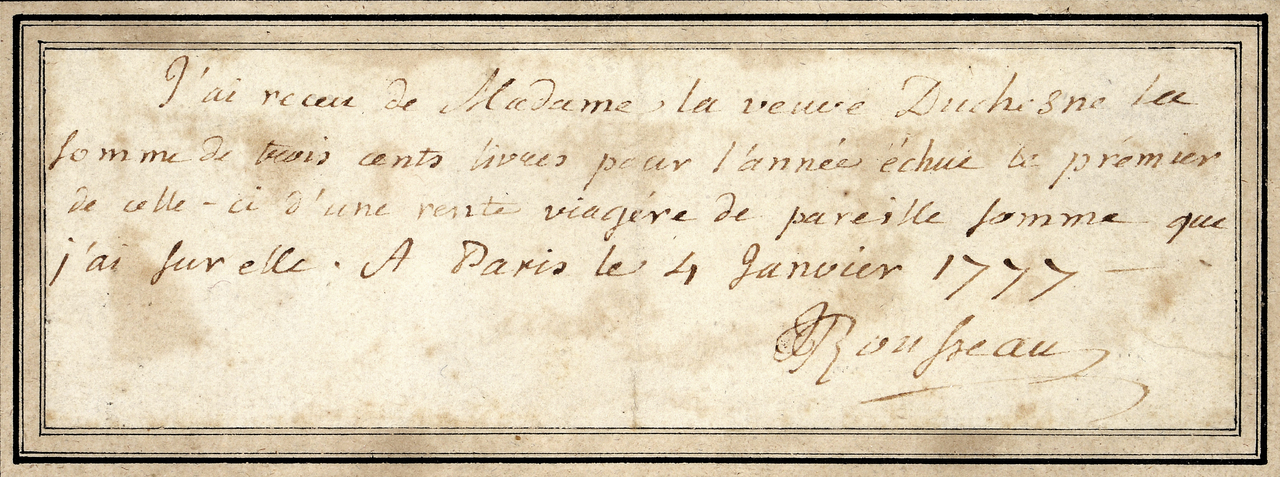 J'ai receu de Madame la veuve Duchesne la
somme de trois cents livres pour l'année échue le prémier
de celle-ci d'une rente viagére de pareille somme que
j'ai sur elle. A Paris le 4 Janvier 1777
JJRousseau